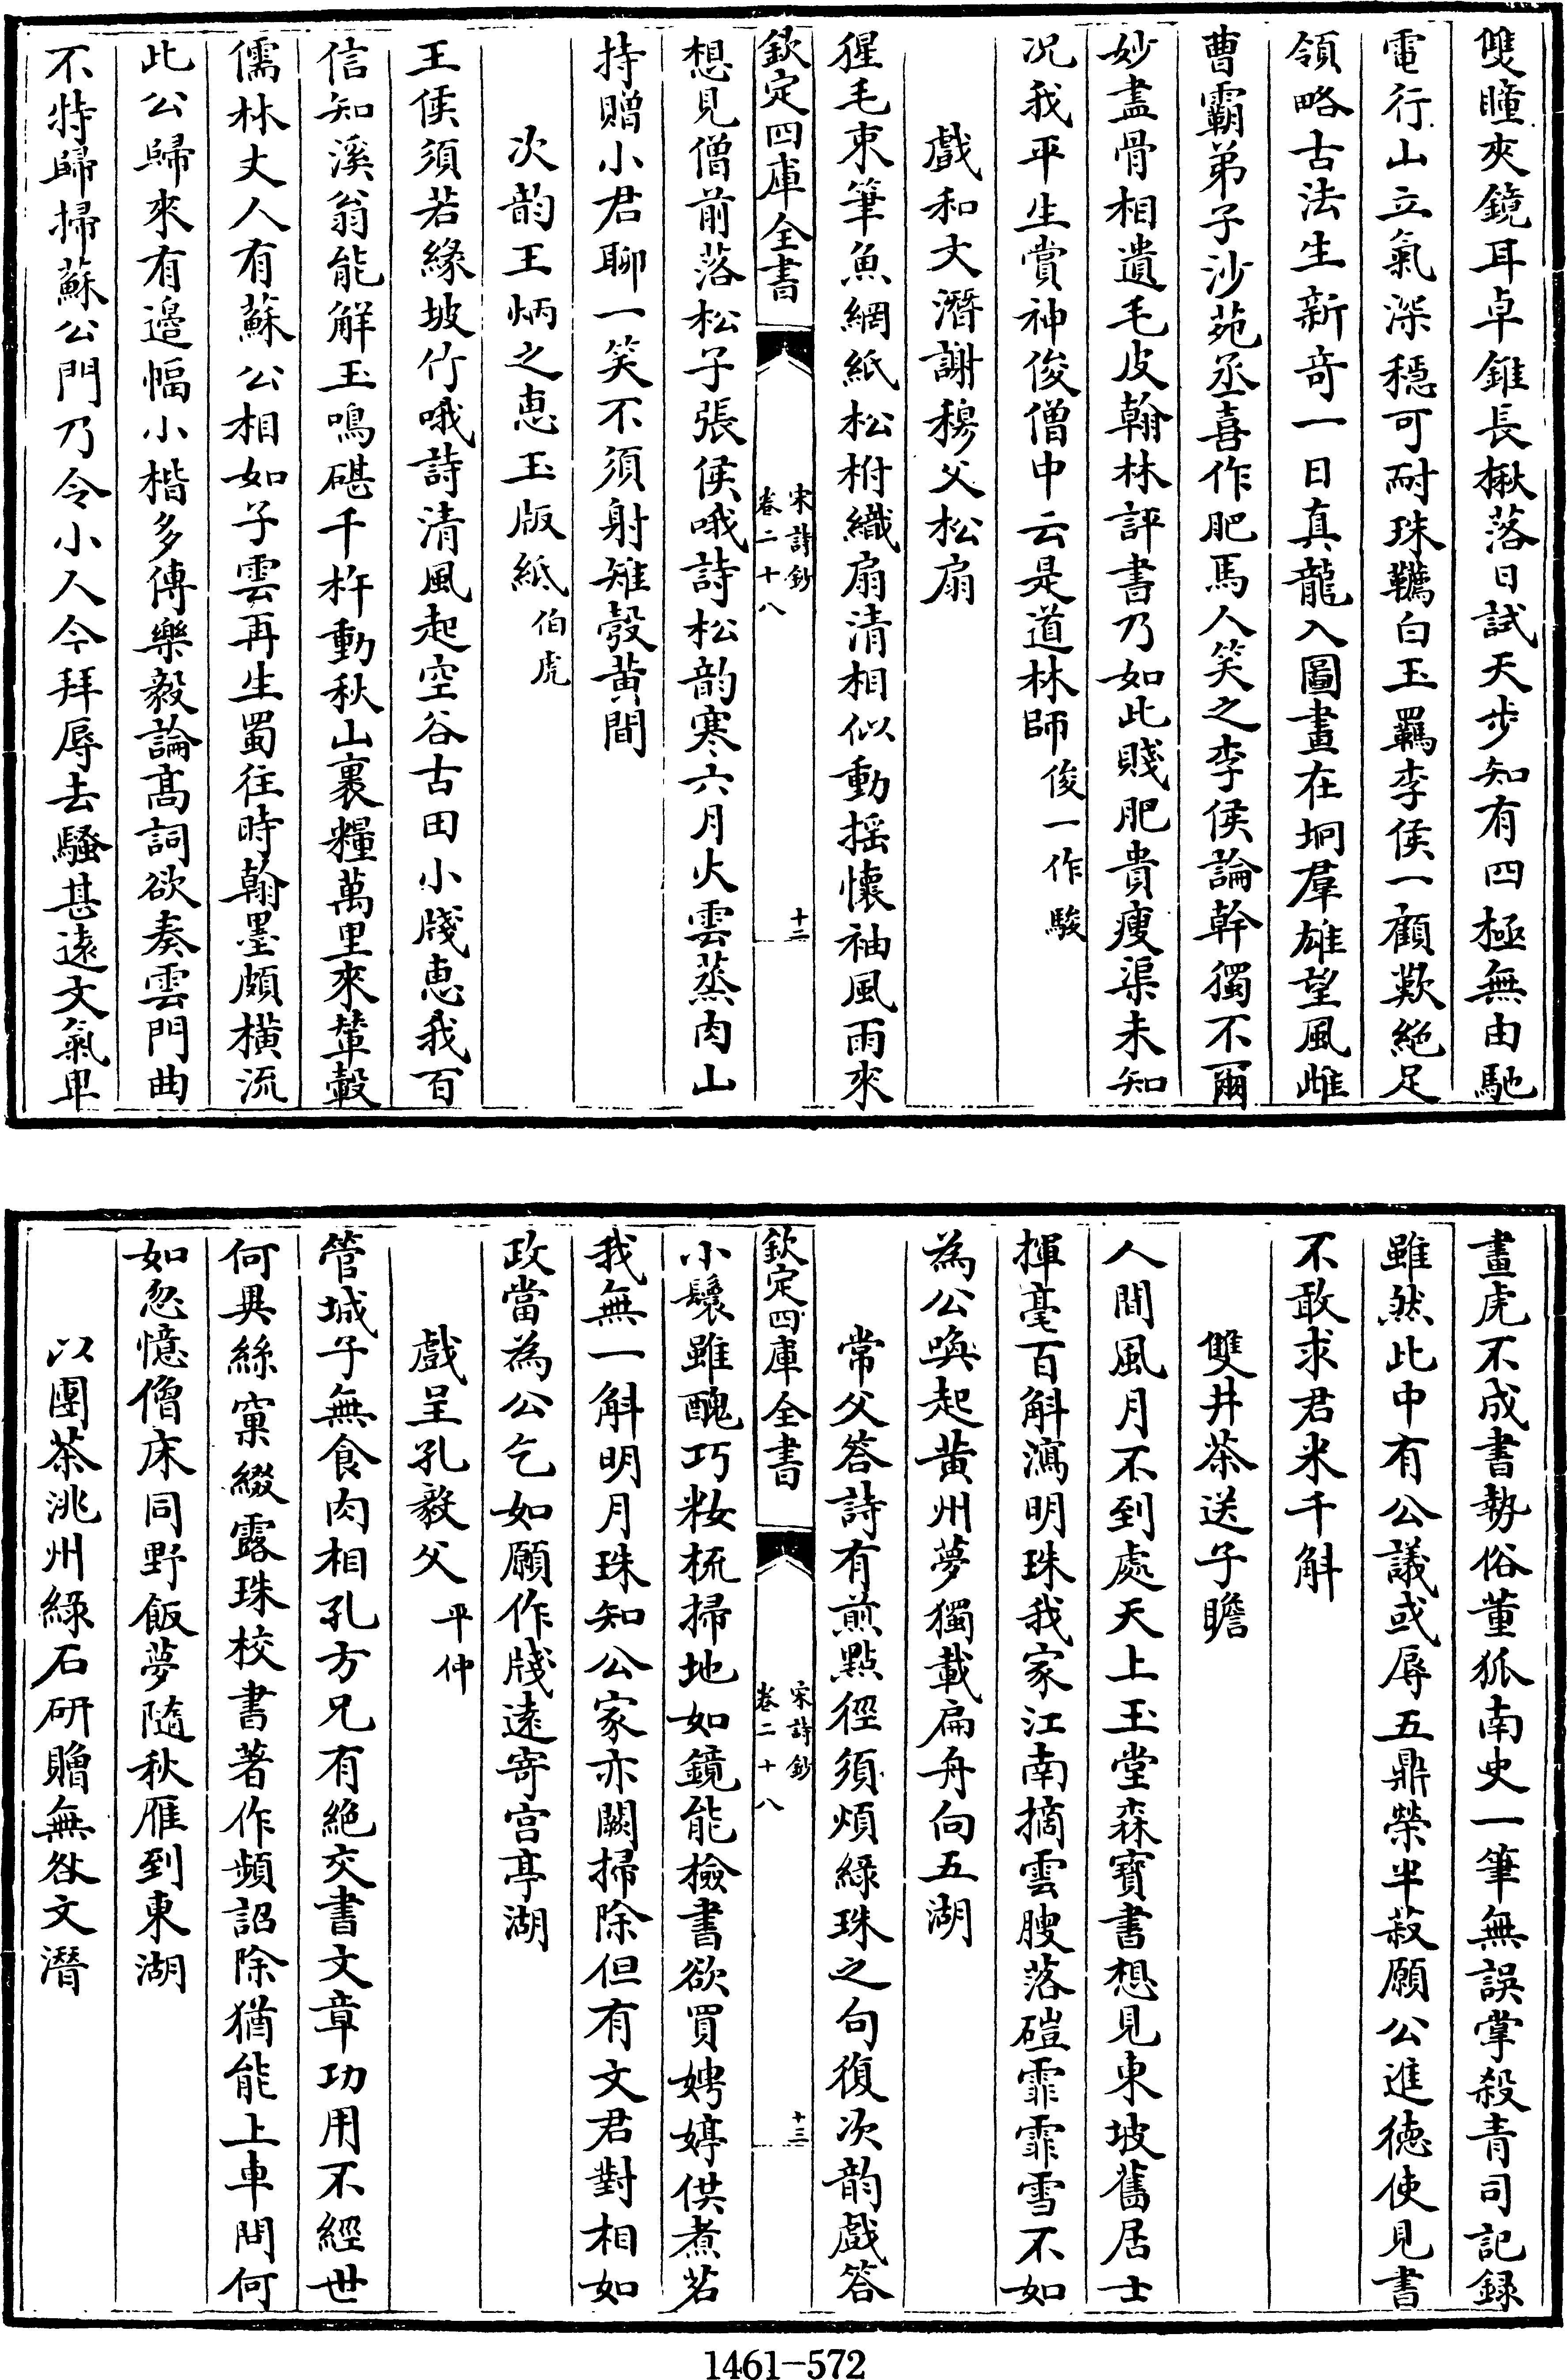 雙瞳夾鏡耳卓錐長楸落日試天步知有四極無由馳
電行山立氣深穏可耐珠韉白玉羈李侯一顧歎絶足
領略古法生新竒一日真龍入圖畫在坰羣雄望風雌
曹霸弟子沙苑丞喜作肥馬人笑之李侯論幹獨不爾
妙盡骨相遺毛皮翰林評書乃如此賤肥貴瘦渠未知
况我平生賞神俊僧中云是道林師俊一作駿
戲和文潛謝穆父松扇
猩毛束筆魚網紙松柎織扇清相似動揺懷袖風雨來
欽定四庫全書
宋詩鈔
卷二十八
十二
想見僧前落松子張侯哦詩松韵寒六月火雲蒸肉山
持贈小君聊一笑不須射雉彀黄間
次韵王炳之惠玉版紙伯虎
王侯須若緣坡竹哦詩清風起空谷古田小牋惠我百
信知溪翁能解玉鳴碪千杵動秋山裹糧萬里來輦轂
儒林丈人有蘇公相如子雲再生蜀往時翰墨頗橫流
此公歸來有邉幅小楷多傳樂毅論髙詞欲奏雲門曲
不持歸掃蘇公門乃令小人今拜辱去騷甚逺文氣卑
畫虎不成書勢俗董狐南史一筆無誤掌殺青司記録
雖然此中有公議或辱五鼎榮半菽願公進徳使見書
不敢求君米千斛
雙井茶送子瞻
人間風月不到處天上玉堂森寳書想見東坡舊居士
揮毫百斛瀉明珠我家江南摘雲腴落磑霏霏雪不如
為公喚起黄州夢獨載扁舟向五湖
常父答詩有煎點徑須煩緑珠之句復次韵戲答
欽定四庫全書
宋詩鈔
卷二十八
十三
小鬟雖醜巧糚梳掃地如鏡能檢書欲買娉婷供煮茗
我無一斛明月珠知公家亦闕掃除但有文君對相如
政當為公乞如願作牋逺寄宫亭湖
戲呈孔毅父平仲
管城子無食肉相孔方兄有絶交書文章功用不經世
何異絲窠綴露珠校書著作頻詔除猶能上車問何
如忽憶僧床同野飯夢隨秋雁到東湖
以團茶洮州緑石研贈無咎文潛
1461—572